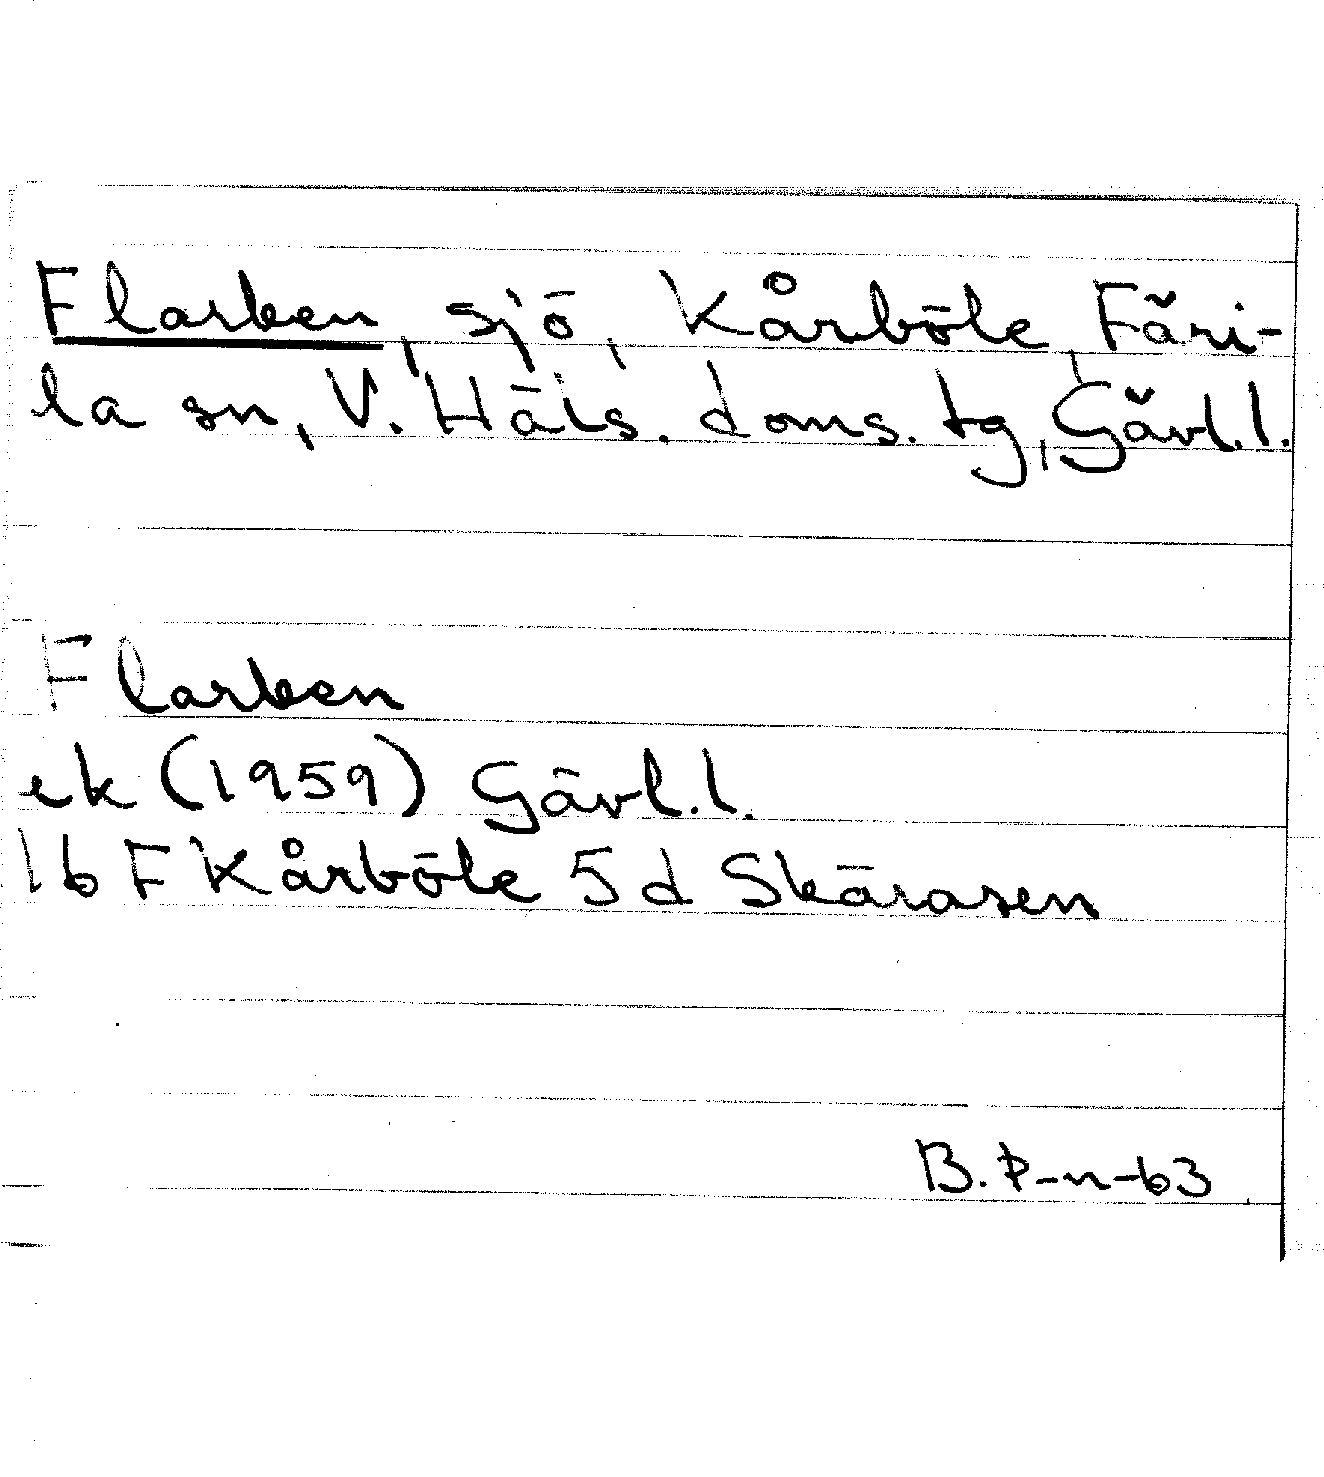 Flarken, sjö, Kårböle, Färi-
la sn, V. Häls. doms. tg, Gävl.l.
Flarken
ek (1959) Gävl.l.
16 F Kårböle 5 d Skärasen
B. P-n-63